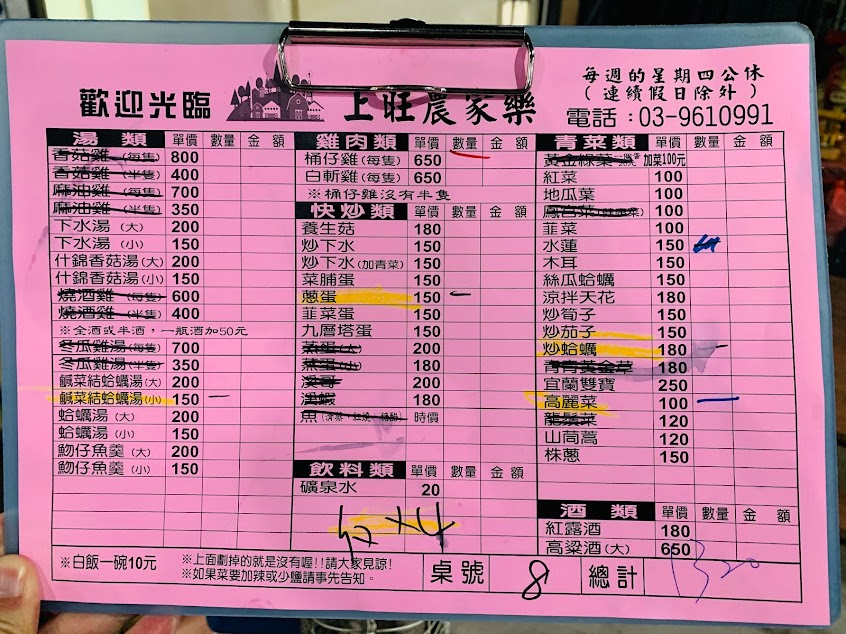 歡迎光臨
上旺農家樂
每週的星期四公休
(連續假日除外)
電話:03-9610991
湯類 單價 數量 金額
香菇雞(每隻) 800
香菇雞(半隻) 400
麻油雞(每隻) 700
麻油雞(半隻) 350
下水湯(大) 200
下水湯(小) 150
什錦香菇湯(大) 200
什錦香菇湯(小) 150
燒酒雞(每隻) 600
燒酒雞(半隻) 400
※全酒或半酒,一瓶酒加50元
冬瓜雞湯(每隻) 700
冬瓜雞湯(半隻) 350
鹹菜結蛤蠣湯(大) 200
鹹菜結蛤蠣湯(小) 150
蛤蠣湯(大) 200
蛤蠣湯(小) 150
魩仔魚羹(大) 200
魩仔魚羹(小) 150
雞肉類 單價 數量 金額
桶仔雞(每隻) 650
白斬雞(每隻) 650
※桶仔雞沒有半隻
快炒類 單價 數量 金額
養生菇 180
炒下水 150
炒下水(加青菜) 150
菜脯蛋 150
蔥蛋 150
韮菜蛋 150
九層塔蛋 150
蒸蛋(大) 200
蒸蛋(小) 180
溪哥 200
溪蝦 180
魚 時價
飲料類 單價 數量 金額
礦泉水 20
青菜類 單價 數量 金額
黃金綠葉 加菜100元
紅菜 100
地瓜葉 100
100
韮菜 100
水蓮 150
木耳 150
絲瓜蛤蠣 150
涼拌天花 180
炒筍子 150
炒茄子 150
炒蛤蠣 180
青青黃金草 180
宜蘭雙寶 250
高麗菜 100
龍鬚菜 120
山茼蒿 120
株蔥 150
酒類 單價 數量 金額
紅露酒 180
高粱酒(大) 650
※白飯一碗10元
※上面劃掉的就是沒有喔!!請大家見諒!
※如果菜要加辣或少鹽請事先告知。
桌號 8
總計 1320